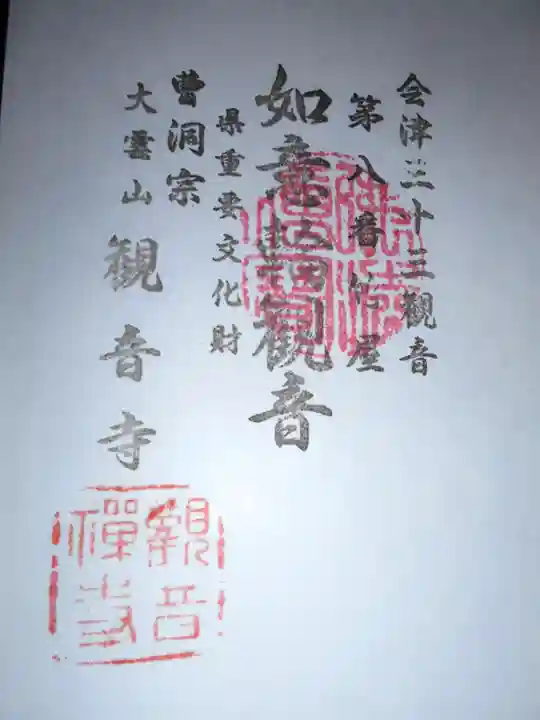 会津三十三観音
第八番 竹屋
如意輪観音
県重要文化財
曹洞宗
大雲山
観音寺
観音
禅寺